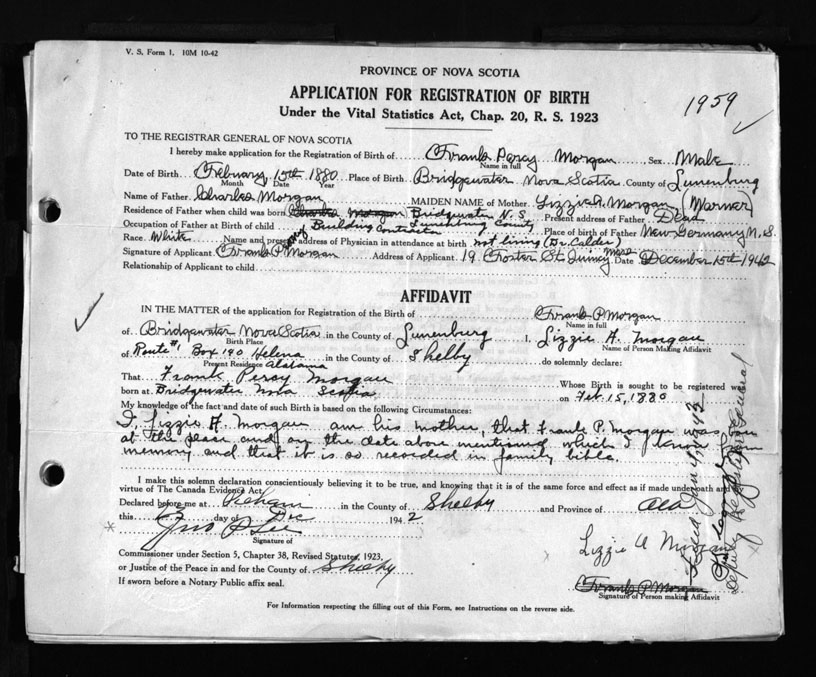 V. S. Form 1. 10M 10-42
PROVINCE OF NOVA SCOTIA
APPLICATION FOR REGISTRATION OF BIRTH
Under the Vital Statistics Act, Chap. 20, R. S. 1923
1959
TO THE REGISTRAR GENERAL OF NOVA SCOTIA
I hereby make application for the Registration of Birth of Frank Percy Morgan Sex Male
Name in full
Date of Birth February 15th 1880 Place of Birth Bridgewater Nova Scotia County of Lunenburg
Month Date Year
Name of Father Charles Morgan MAIDEN NAME of Mother Lizzie A. Morgan (Warner)
Residence of Father when child was born Charles Morgan Bridgewater N.S. Present address of Father Dead
Lunenburg County
Occupation of Father at Birth of child Building Contractor Place of birth of Father New Germany N.S.
Race White Name and present address of Physician in attendance at birth not living (Dr. Calder)
Signature of Applicant Frank P Morgan Address of Applicant 19 Foster St. Quincy Mass Date December 15th 1942
Relationship of Applicant to child
AFFIDAVIT
IN THE MATTER of the application for Registration of the Birth of Frank P. Morgan
Name in full
of Bridgewater Nova Scotia in the County of Lunenburg I, Lizzie A. Morgan
Birth Place Name of Person Making Affidavit
of Route #1 Box 190 Helena in the County of Shelby do solemnly declare:
Present Residence Alabama
That Frank Percy Morgan Whose Birth is sought to be registered was
born at Bridgewater Nova Scotia on Feb. 15, 1880
My knowledge of the fact and date of such Birth is based on the following Circumstances:
I, Lizzie A. Morgan am his mother, that Frank P. Morgan was born
at the place and on the date above mentioned which I know from
memory and that it is so recorded in family bible.
I make this solemn declaration conscientiously believing it to be true, and knowing that it is of the same force and effect as if made under oath and
virtue of The Canada Evidence Act
Declared before me at Pelham in the County of Shelby and Province of Ala
this day of Dec 1942
Jno P Lee
Signature of
Lizzie A Morgan
Commissioner under Section 5, Chapter 38, Revised Statutes, 1923,
or Justice of the Peace in and for the County of Shelby
Frank P Morgan
If sworn before a Notary Public affix seal.
Signature of Person making Affidavit
For Information respecting the filling out of this Form, see Instructions on the reverse side.
Deputy Registrar General